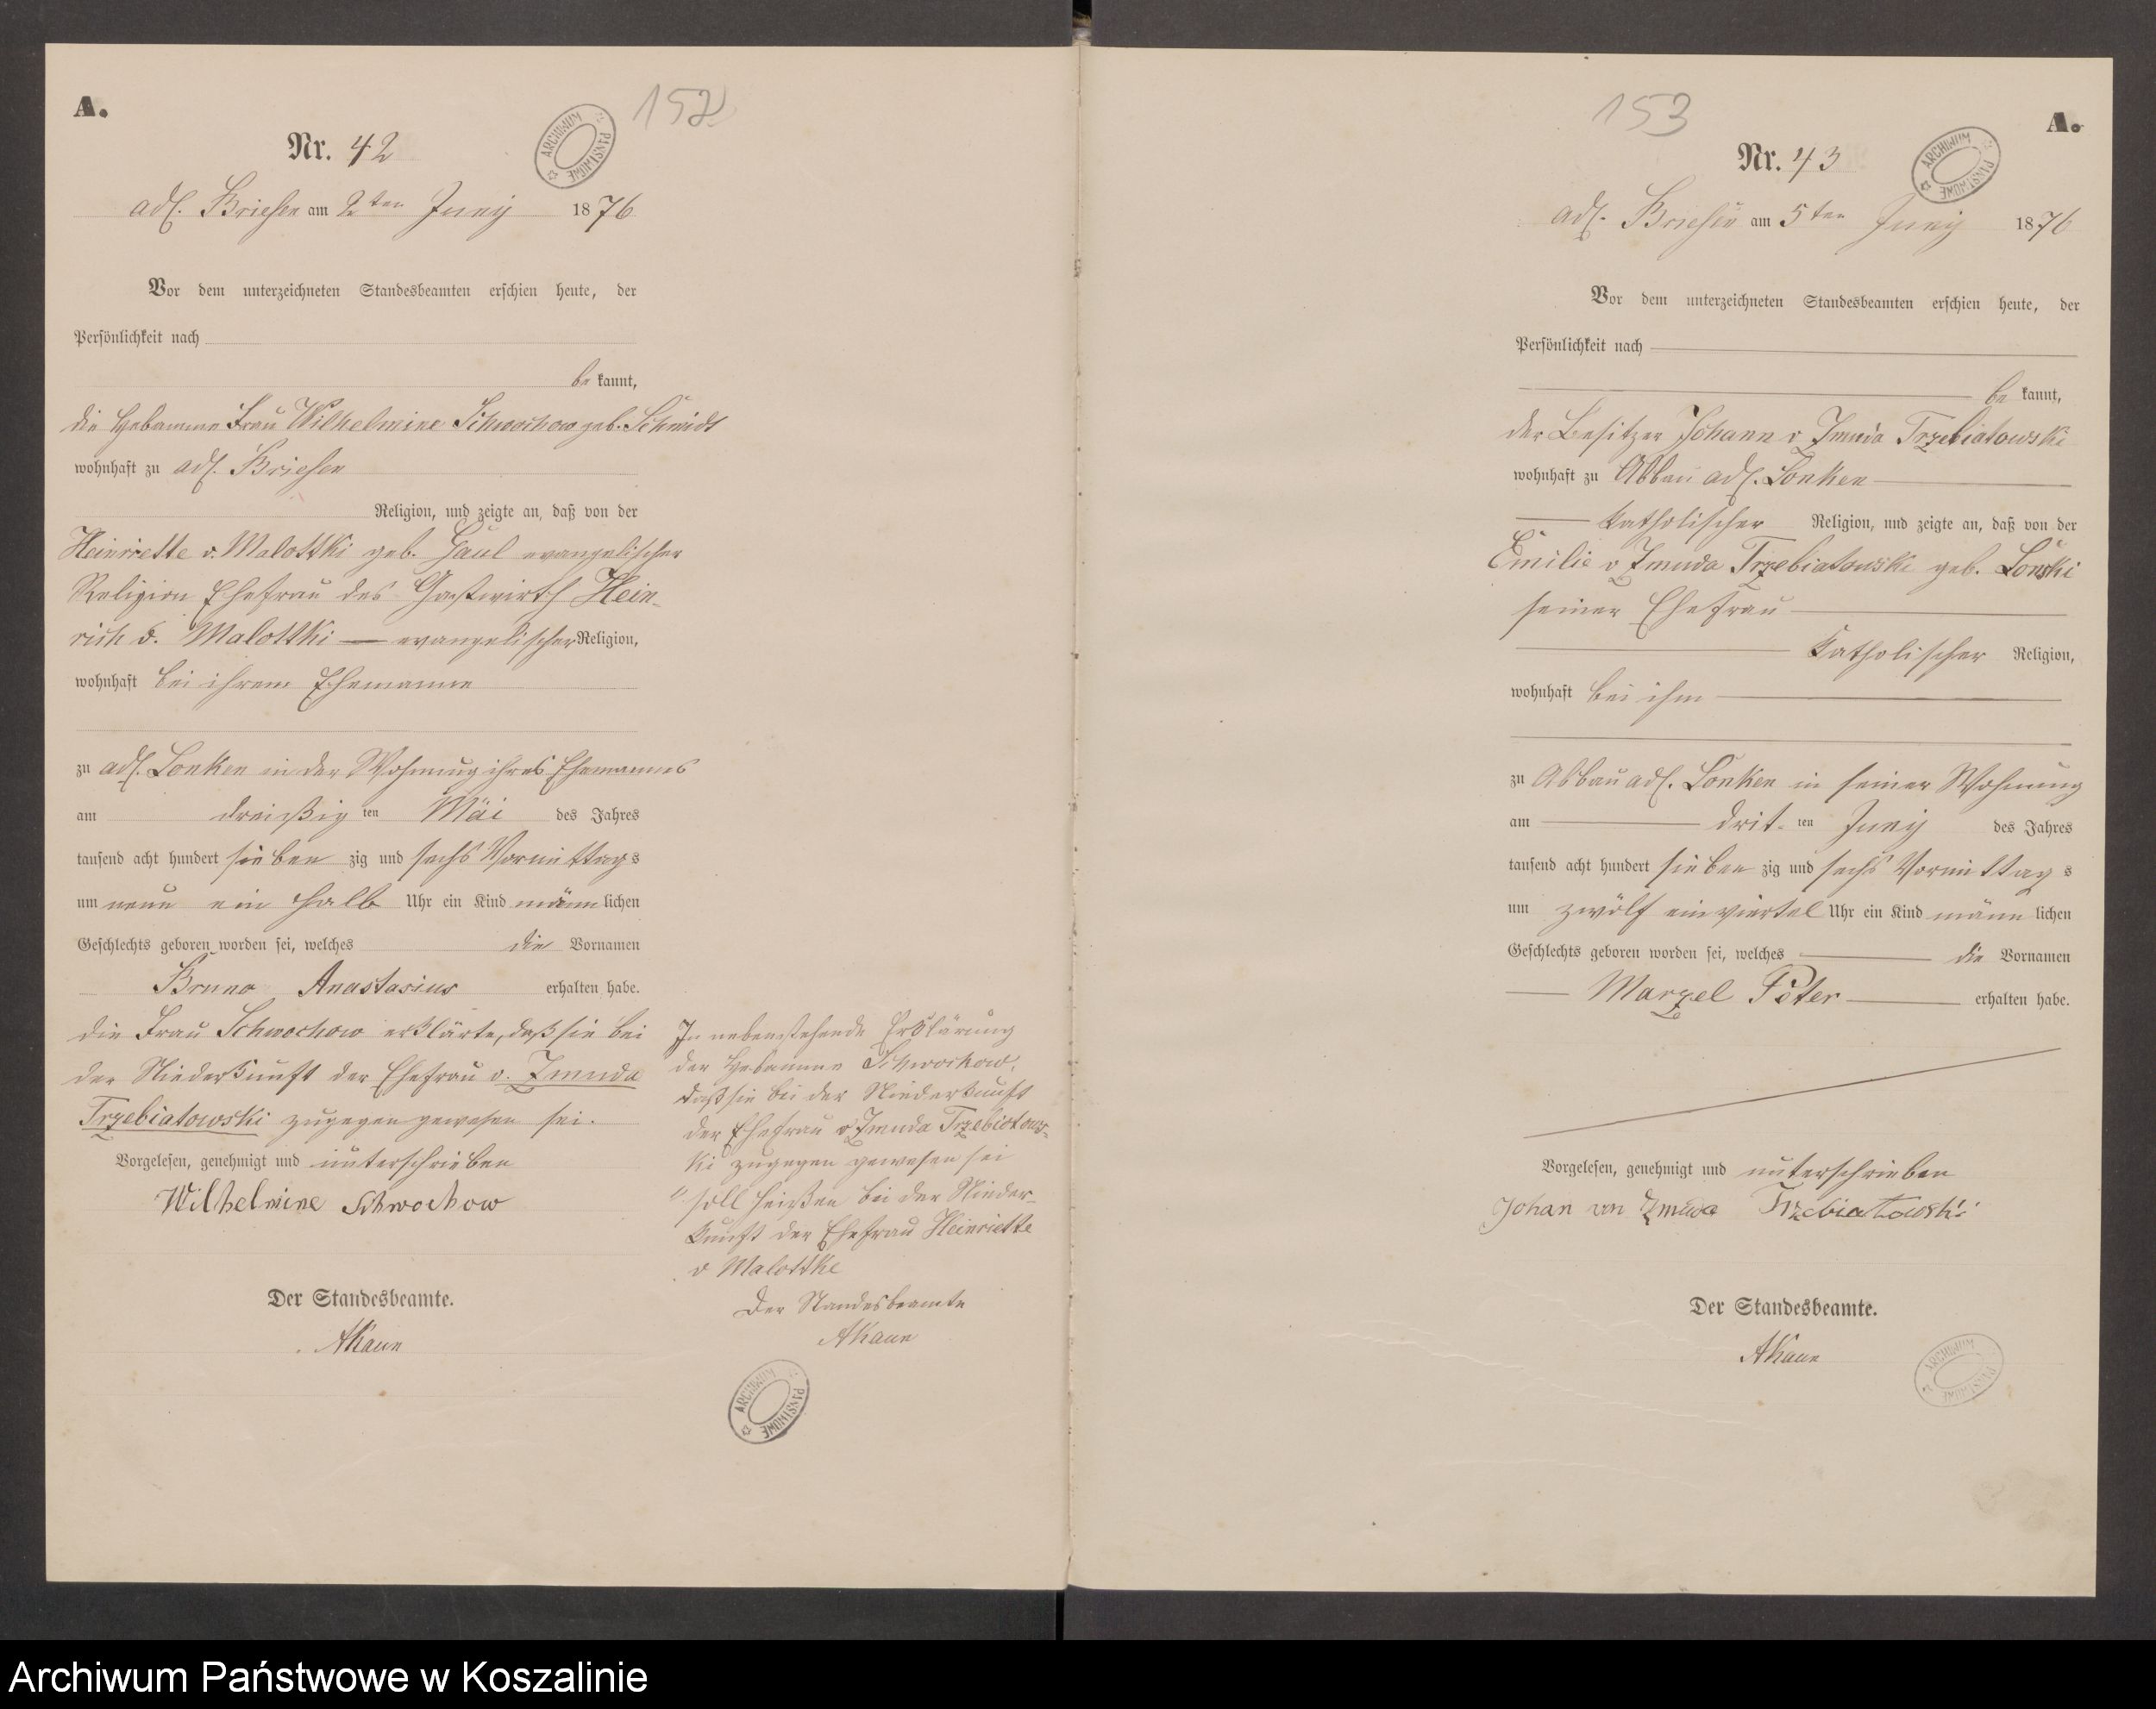 A.
152
Nr. 42
ARCHIWUM PAŃSTWOWE
adl. Briesen am 2ten Juny 1876
Vor dem unterzeichneten Standesbeamten erschien heute, der
Persönlichkeit nach
be kannt,
die Hebamme Frau Wilhelmine Schwochow geb. Schmidt
wohnhaft zu adl. Briesen
Religion, und zeigte an, daß von der
Heinriette v. Malottki geb. Gaul evangelischer
Religion Ehefrau des Gastwirth Hein-
rich v. Malottki — evangelischer Religion,
wohnhaft bei ihrem Ehemanne
zu adl. Lonken in der Wohnung ihres Ehemannes
am dreißig ten Mai des Jahres
tausend acht hundert sieben zig und sechs Vormittags
um neun ein halb Uhr ein Kind männ lichen
Geschlechts geboren worden sei, welches die Vornamen
Bruno Anastasius erhalten habe.
Die Frau Schwochow erklärte, daß sie bei
der Niederkunft der Ehefrau v. Zmuda
Trzebiatowski zugegen gewesen sei.
Vorgelesen, genehmigt und unterschrieben
Wilhelmine Schwochow
Der Standesbeamte.
AKaun
In nebenstehende Erklärung
der Hebamme Schwochow,
daß sie bei der Niederkunft
der Ehefrau v Zmuda Trzebiatows-
ki zugegen gewesen sei
soll heißen bei der Nieder-
kunft der Ehefrau Heinriette
v Malottke
Der Standesbeamte
AKaun
ARCHIWUM PAŃSTWOWE
153
A.
Nr. 43
ARCHIWUM PAŃSTWOWE
adl. Briesen am 5ten Juny 1876
Vor dem unterzeichneten Standesbeamten erschien heute, der
Persönlichkeit nach
be kannt,
der Besitzer Johann v Zmuda Trzebiatowski
wohnhaft zu Abbau adl. Lonken
katholischer Religion, und zeigte an, daß von der
Emilie v Zmuda Trzebiatowski geb. Lonski
seiner Ehefrau
katholischer Religion,
wohnhaft bei ihm
zu Abbau adl. Lonken in seiner Wohnung
am drit- ten Juny des Jahres
tausend acht hundert sieben zig und sechs Vormittag s
um zwölf ein viertel Uhr ein Kind männ lichen
Geschlechts geboren worden sei, welches die Vornamen
Marzel Peter erhalten habe.
Vorgelesen, genehmigt und unterschrieben
Johan von Zmuda Trzebiatowski
Der Standesbeamte.
AKaun
ARCHIWUM PAŃSTWOWE
Archiwum Państwowe w Koszalinie